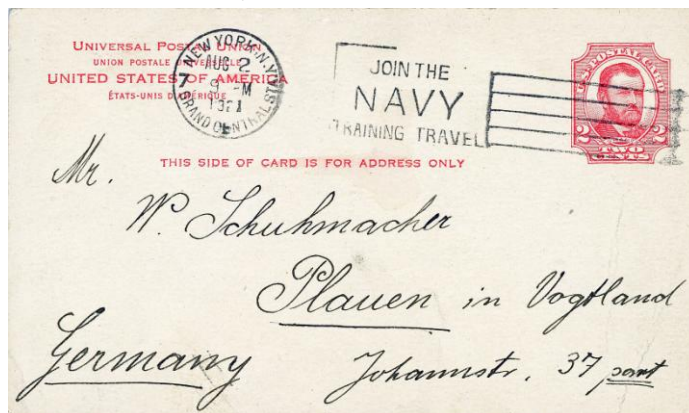 UNIVERSAL POSTAL UNION
UNION POSTALE UNIVERSELLE
UNITED STATES OF AMERICA
ÉTATS-UNIS D'AMÉRIQUE
NEW YORK, N.Y.
AUG 2
9 - M
1921
GRAND CENTRAL STA.
JOIN THE
NAVY
TRAINING TRAVEL
U.S. POSTAL CARD
2 2
TWO
CENTS
THIS SIDE OF CARD IS FOR ADDRESS ONLY
Mr.
W. Schuhmacher
Plauen in Vogtland
Germany Johannstr. 37 part